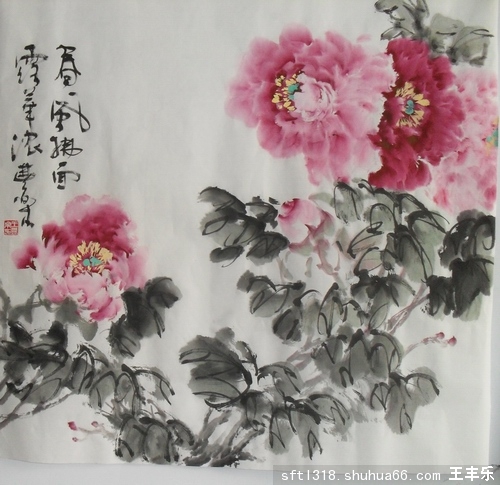 春风拂面
露華浓
sftl318.shuhua66.com 王丰乐